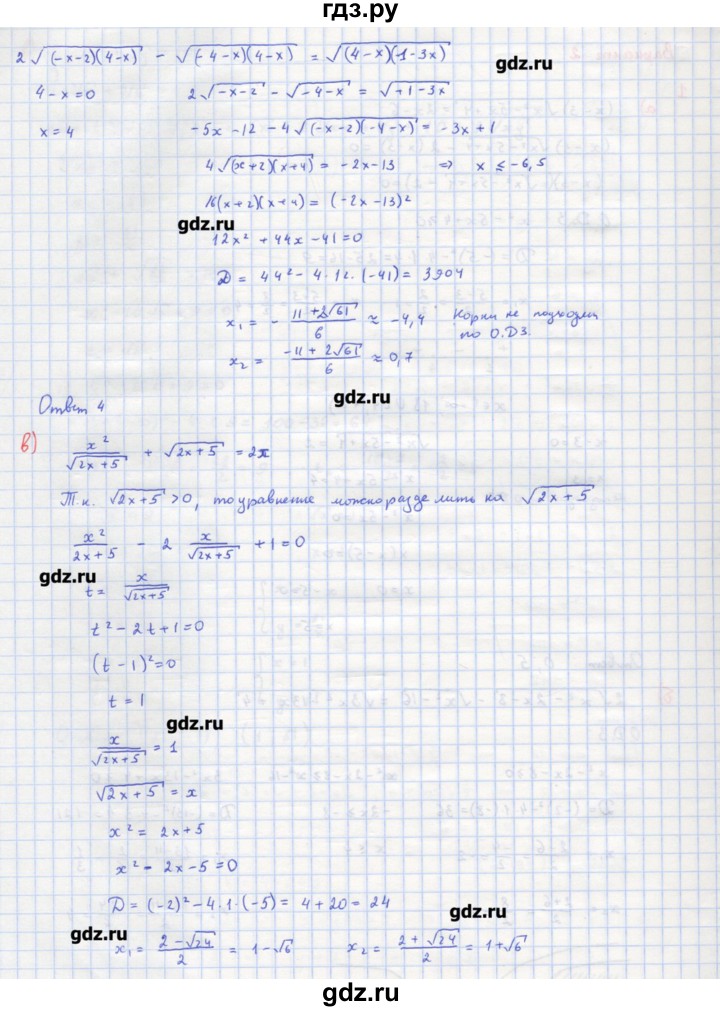 гдз.ру
2√((-x-2)(4-x)) - √((-4-x)(4-x)) = √((4-x)(1-3x))
gdz.ru
4-x=0 2√(-x-2) - √(-4-x) = √(+1-3x)
x=4 -5x-12-4√((-x-2)(-4-x)) = -3x+1
4√((x+2)(x+4)) = -2x-13 ⇒ x ≤ -6,5
16(x+2)(x+4) = (-2x-13)²
gdz.ru
12x²+44x-41=0
D = 44²-4·12·(-41) = 3904
x₁ = - (11+2√61)/6 ≈ -4,4 Корни не подходят
по О.ДЗ.
x₂ = (-11+2√61)/6 ≈ 0,7
gdz.ru
Ответ 4
в) x²/√(2x+5) + √(2x+5) = 2x
Т.к. √(2x+5) >0, то уравнение можно разделить на √(2x+5)
x²/(2x+5) - 2 x/√(2x+5) +1=0
gdz.ru
t = x/√(2x+5)
t²-2t+1=0
(t-1)²=0
t=1
gdz.ru
x/√(2x+5) = 1
√(2x+5) = x
x² = 2x+5
x²-2x-5=0
D = (-2)²-4·1·(-5) = 4+20 = 24
gdz.ru
gdz.ru
x₁ = (2-√24)/2 = 1-√6 x₂ = (2+√24)/2 = 1+√6
gdz.ru